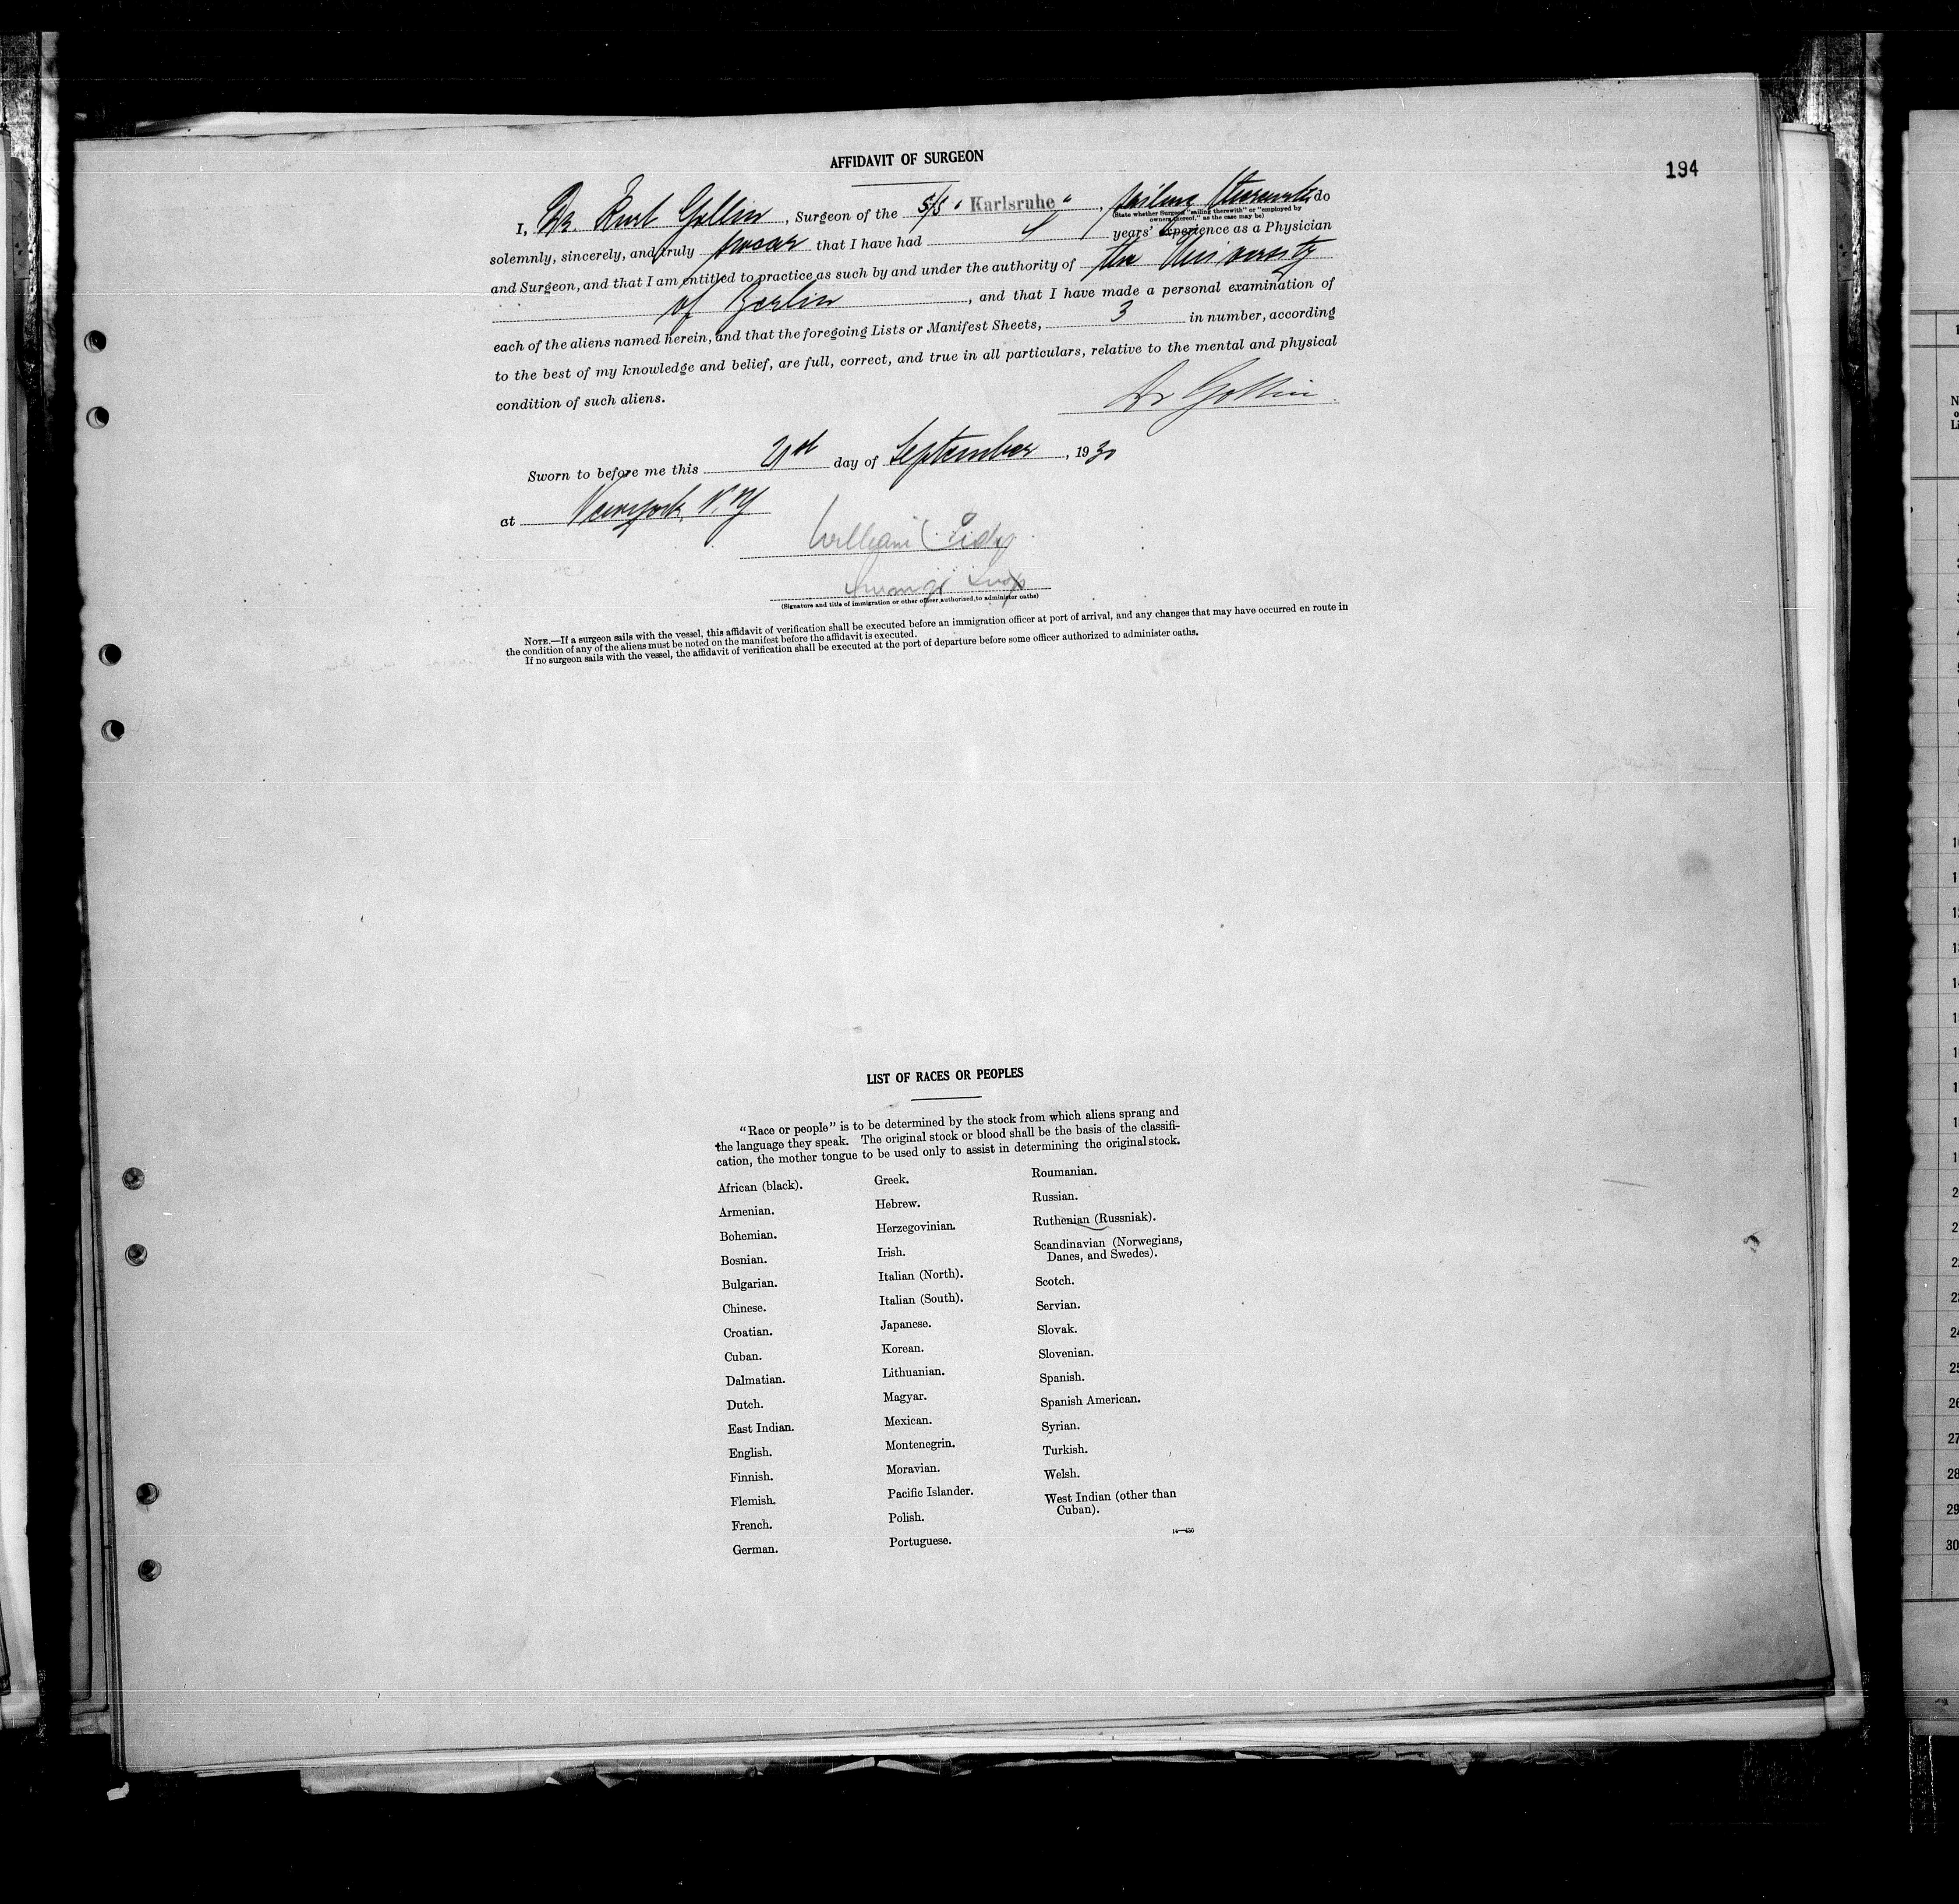 AFFIDAVIT OF SURGEON
194
I, Dr. Kurt Gollin, Surgeon of the S/S "Karlsruhe", sailing therewith do
(State whether Surgeon "sailing therewith" or "employed by
owners thereof," as the case may be)
solemnly, sincerely, and truly swear that I have had years' experience as a Physician
and Surgeon, and that I am entitled to practice as such by and under the authority of the University
of Berlin, and that I have made a personal examination of
each of the aliens named herein, and that the foregoing Lists or Manifest Sheets, 3 in number, according
to the best of my knowledge and belief, are full, correct, and true in all particulars, relative to the mental and physical
condition of such aliens.
Dr Gollin
Sworn to before me this day of September, 1930
at New York, N.Y.
William
(Signature and title of immigration or other officer authorized to administer oaths)
NOTE.—If a surgeon sails with the vessel, this affidavit of verification shall be executed before an immigration officer at port of arrival, and any changes that may have occurred en route in
the condition of any of the aliens must be noted on the manifest before the affidavit is executed.
If no surgeon sails with the vessel, the affidavit of verification shall be executed at the port of departure before some officer authorized to administer oaths.
LIST OF RACES OR PEOPLES
"Race or people" is to be determined by the stock from which aliens sprang and
the language they speak. The original stock or blood shall be the basis of the classifi-
cation, the mother tongue to be used only to assist in determining the original stock.
African (black).
Armenian.
Bohemian.
Bosnian.
Bulgarian.
Chinese.
Croatian.
Cuban.
Dalmatian.
Dutch.
East Indian.
English.
Finnish.
Flemish.
French.
German.
Greek.
Hebrew.
Herzegovinian.
Irish.
Italian (North).
Italian (South).
Japanese.
Korean.
Lithuanian.
Magyar.
Mexican.
Montenegrin.
Moravian.
Pacific Islander.
Polish.
Portuguese.
Roumanian.
Russian.
Ruthenian (Russniak).
Scandinavian (Norwegians,
Danes, and Swedes).
Scotch.
Servian.
Slovak.
Slovenian.
Spanish.
Spanish American.
Syrian.
Turkish.
Welsh.
West Indian (other than
Cuban).